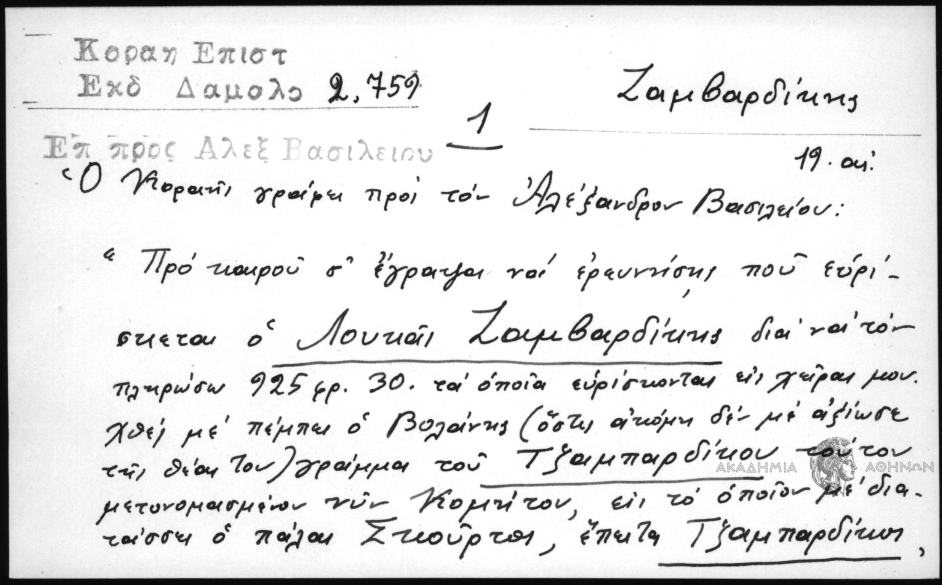 Κοραη Επιστ
Εκδ Δαμαλα 2,759
Ζαμβαρδίκης
1
Επ προς Αλεξ Βασιλειου
19. αἰ.
Ὁ Κοραῆς γράφει πρὸς τὸν Ἀλέξανδρον Βασιλείου:
"Πρὸ καιροῦ σ' ἔγραψα νὰ ἐρευνήσῃς ποῦ εὑρί-
σκεται ὁ Λουκᾶς Ζαμβαρδίκης, διὰ νὰ τὸν
πληρώσω 925 φρ. 30. τὰ ὁποῖα εὑρίσκονται εἰς χεῖρας μου.
Χθὲς μὲ πέμπει ὁ Βολάνης (ὅστις ἀκόμη δὲν μὲ ἀξίωσε
τῆς θέας του) γράμμα τοῦ Τζαμπαρδίκου τούτου
μετονομασμένου νῦν Κομνήτου, εἰς τὸ ὁποῖον μὲ δια-
τάσσει ὁ πάλαι Σκοῦρτας, ἔπειτα Τζαμπαρδίκος,
ΑΚΑΔΗΜΙΑ ΑΘΗΝΩΝ